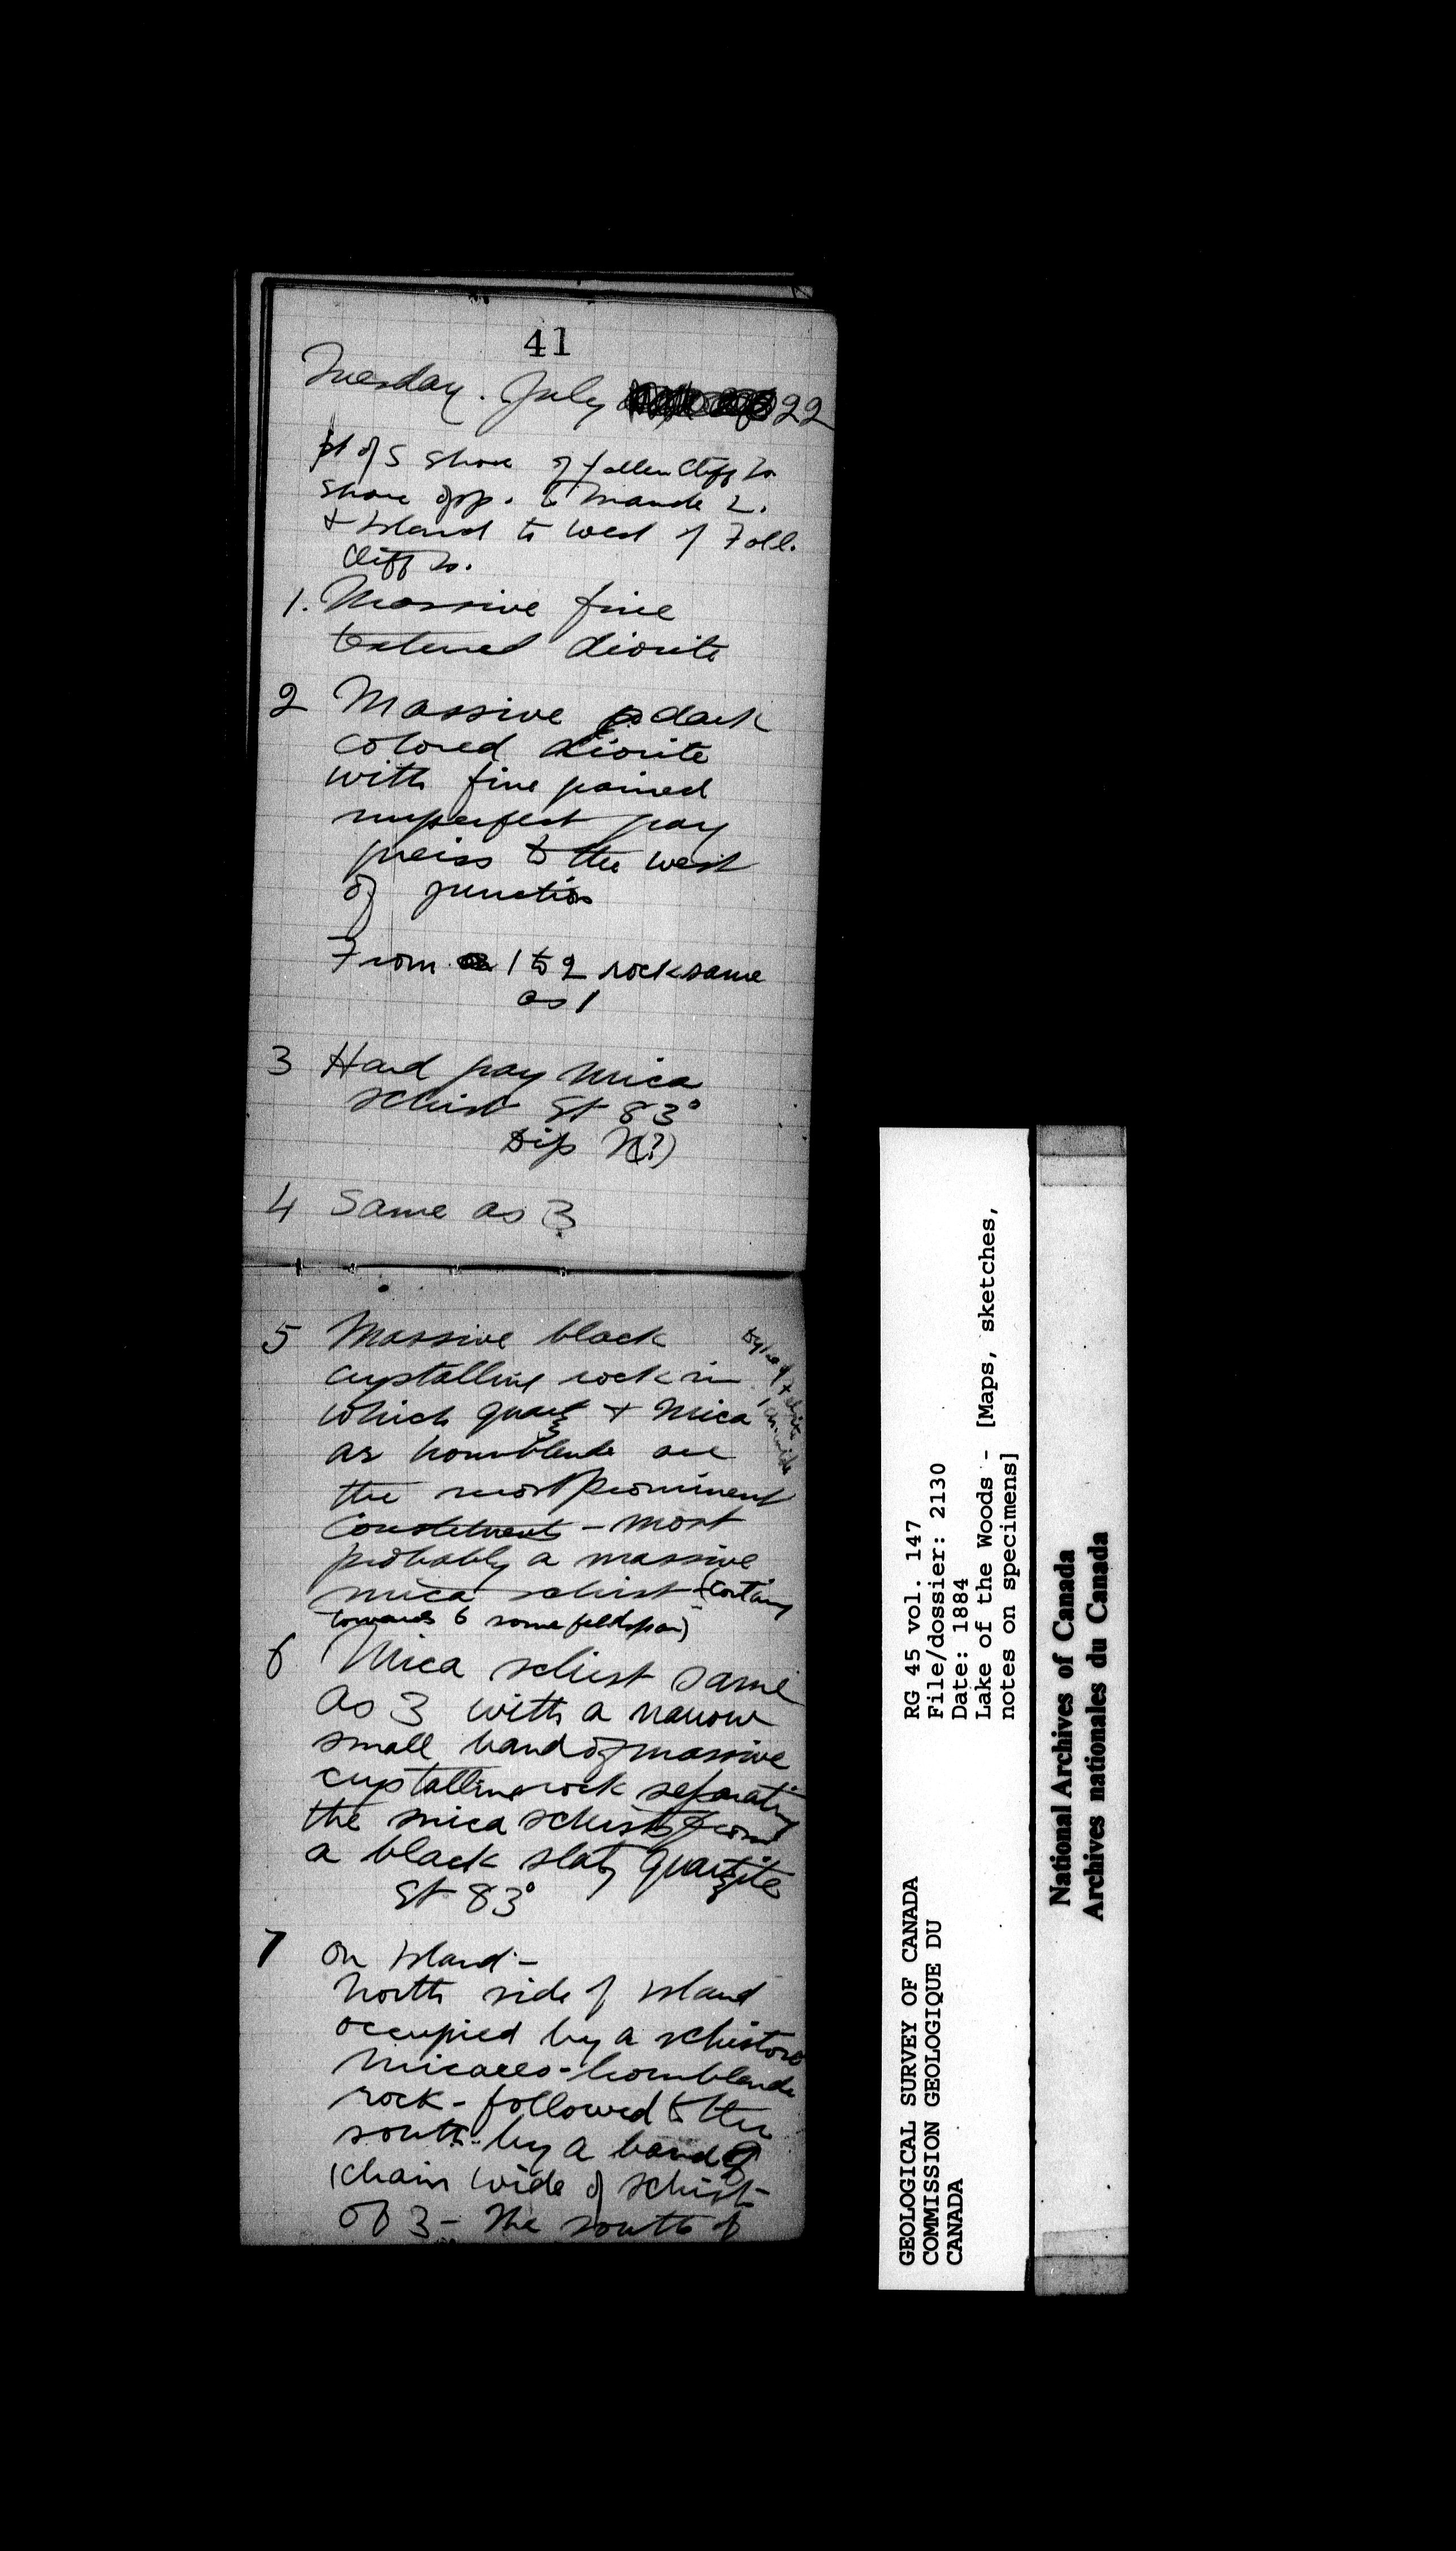 41
Tuesday. July 22
pt of S Shore of fallen Cliff Is
shore opp. to Maude L.
+ Island to west of Fall.
Cliff Is.
1. Massive fine
textured diorite
2 Massive dark
colored diorite
with fine grained
imperfect gray
gneiss to the west
of junction
From 1 to 2 rock same
as 1
3 Hard gray mica
schist St 83°
Dip N(?)
4 Same as 3
5 Massive black
crystalline rock in
which quartz + mica
or hornblende are
the most prominent
constituents - most
probably a massive
mica schist (containg
towards 6 some feldspar)
Dyke of
wide
6 Mica schist same
as 3 with a narrow
small band of massive
crystalline rock separating
the mica schists from
a black slaty quartzite
St 83°
7 On Island -
North side of island
occupied by a schistose
micaceo-hornblende
rock - followed to the
south by a band
1 chain wide of schist
of 3 - The south of
GEOLOGICAL SURVEY OF CANADA
COMMISSION GEOLOGIQUE DU
CANADA
RG 45 vol. 147
File/dossier: 2130
Date: 1884
Lake of the Woods - [Maps, sketches,
notes on specimens]
National Archives of Canada
Archives nationales du Canada